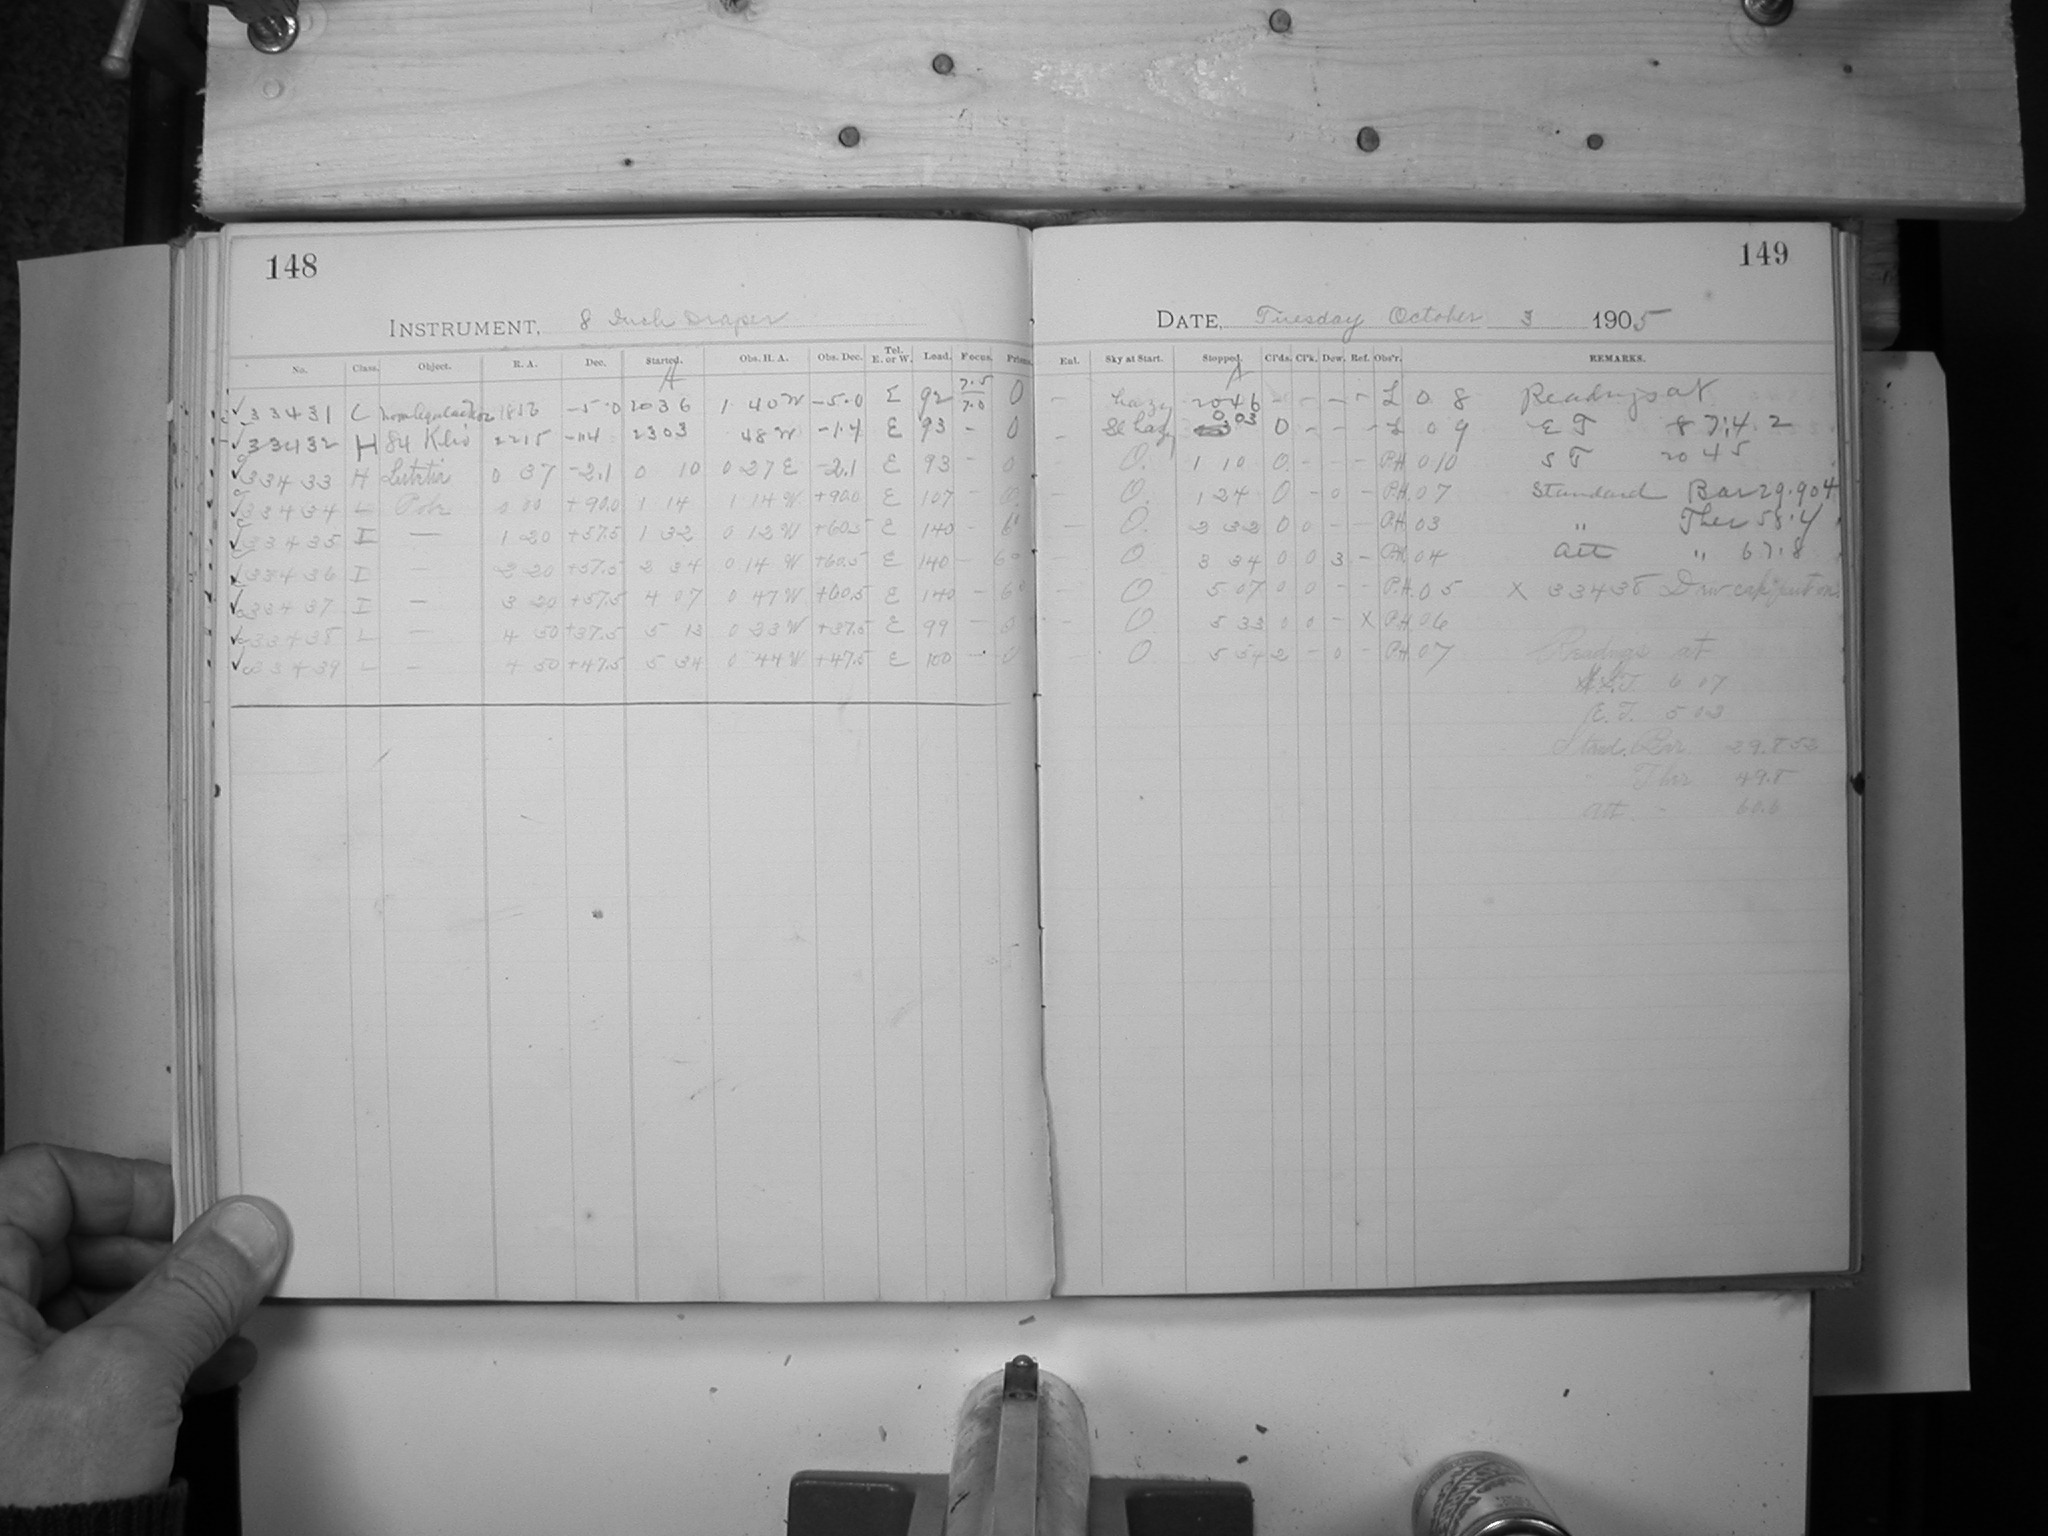 148
149
INSTRUMENT, 8 Inch Draper
DATE, Tuesday October 3 1905
No. Class. Object. R. A. Dec. Started. Obs. H. A. Obs. Dec. Tel. E. or W. Load. Focus. Prisms. Ent. Sky at Start. Stopped. Cl'ds. Cl'k. Dew. Ref. Obs'r. REMARKS.
A A
33431 C -5.0 2036 1 40 W -5.0 E 92 7.5 7.0 0 - hazy 2046 - - - - L 08 Readings at
33432 H 84 Klio 2215 -1.4 2303 48 W -1.4 E 93 - 0 - Sl haz 0 03 0 - - - L 09 E T 8 7:4.2
33433 H Lutetia 0 37 -2.1 0 10 0 27 E -2.1 E 93 - 0 0. 1 10 0 - - - P.H. 010 S T 20 45
33434 L Pole 0 00 +90.0 1 14 1 14 W +90.0 E 107 - 0 - 0. 1 24 0 - 0 - P.H. 07 Standard Bar 29.904
33435 I — 1 20 +57.5 1 32 0 12 W +60.5 E 140 - 6° - 0. 2 32 0 0 - - P.H. 03 " Ther 58.4
33436 I — 2 20 +57.5 2 34 0 14 W +60.5 E 140 - 6° - 0 3 34 0 0 3 - P.H. 04 Att " 67.8
33437 I — 3 20 +57.5 4 07 0 47 W +60.5 E 140 - 6° - 0 5 07 0 0 - - P.H. 05 X 33438 Dew cap put on.
33438 L — 4 50 +37.5 5 13 0 23 W +37.5 E 99 - 0 - 0 5 33 0 0 - X P.H. 06
33439 L — 4 50 +47.5 5 34 0 44 W +47.5 E 100 - 0 - 0 5 54 2 - 0 - P.H. 07 Readings at
S.T. 6 07
E.T. 5 03
Stand. Bar 29.852
" Ther 49.8
Att. - 60.6